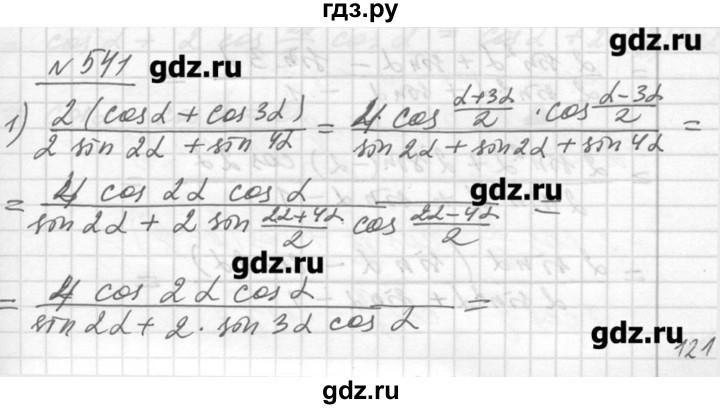 гдз.ру
gdz.ru
№ 541
gdz.ru
1) 2 (cos α + cos 3α) / 2 sin 2α + sin 4α = 4 cos α+3α/2 · cos α-3α/2 / sin 2α + sin 2α + sin 4α =
gdz.ru
= 4 cos 2α cos α / sin 2α + 2 sin 2α+4α/2 cos 2α-4α/2 =
gdz.ru
= 4 cos 2α cos α / sin 2α + 2 · sin 3α cos α =
gdz.ru
121
gdz.ru